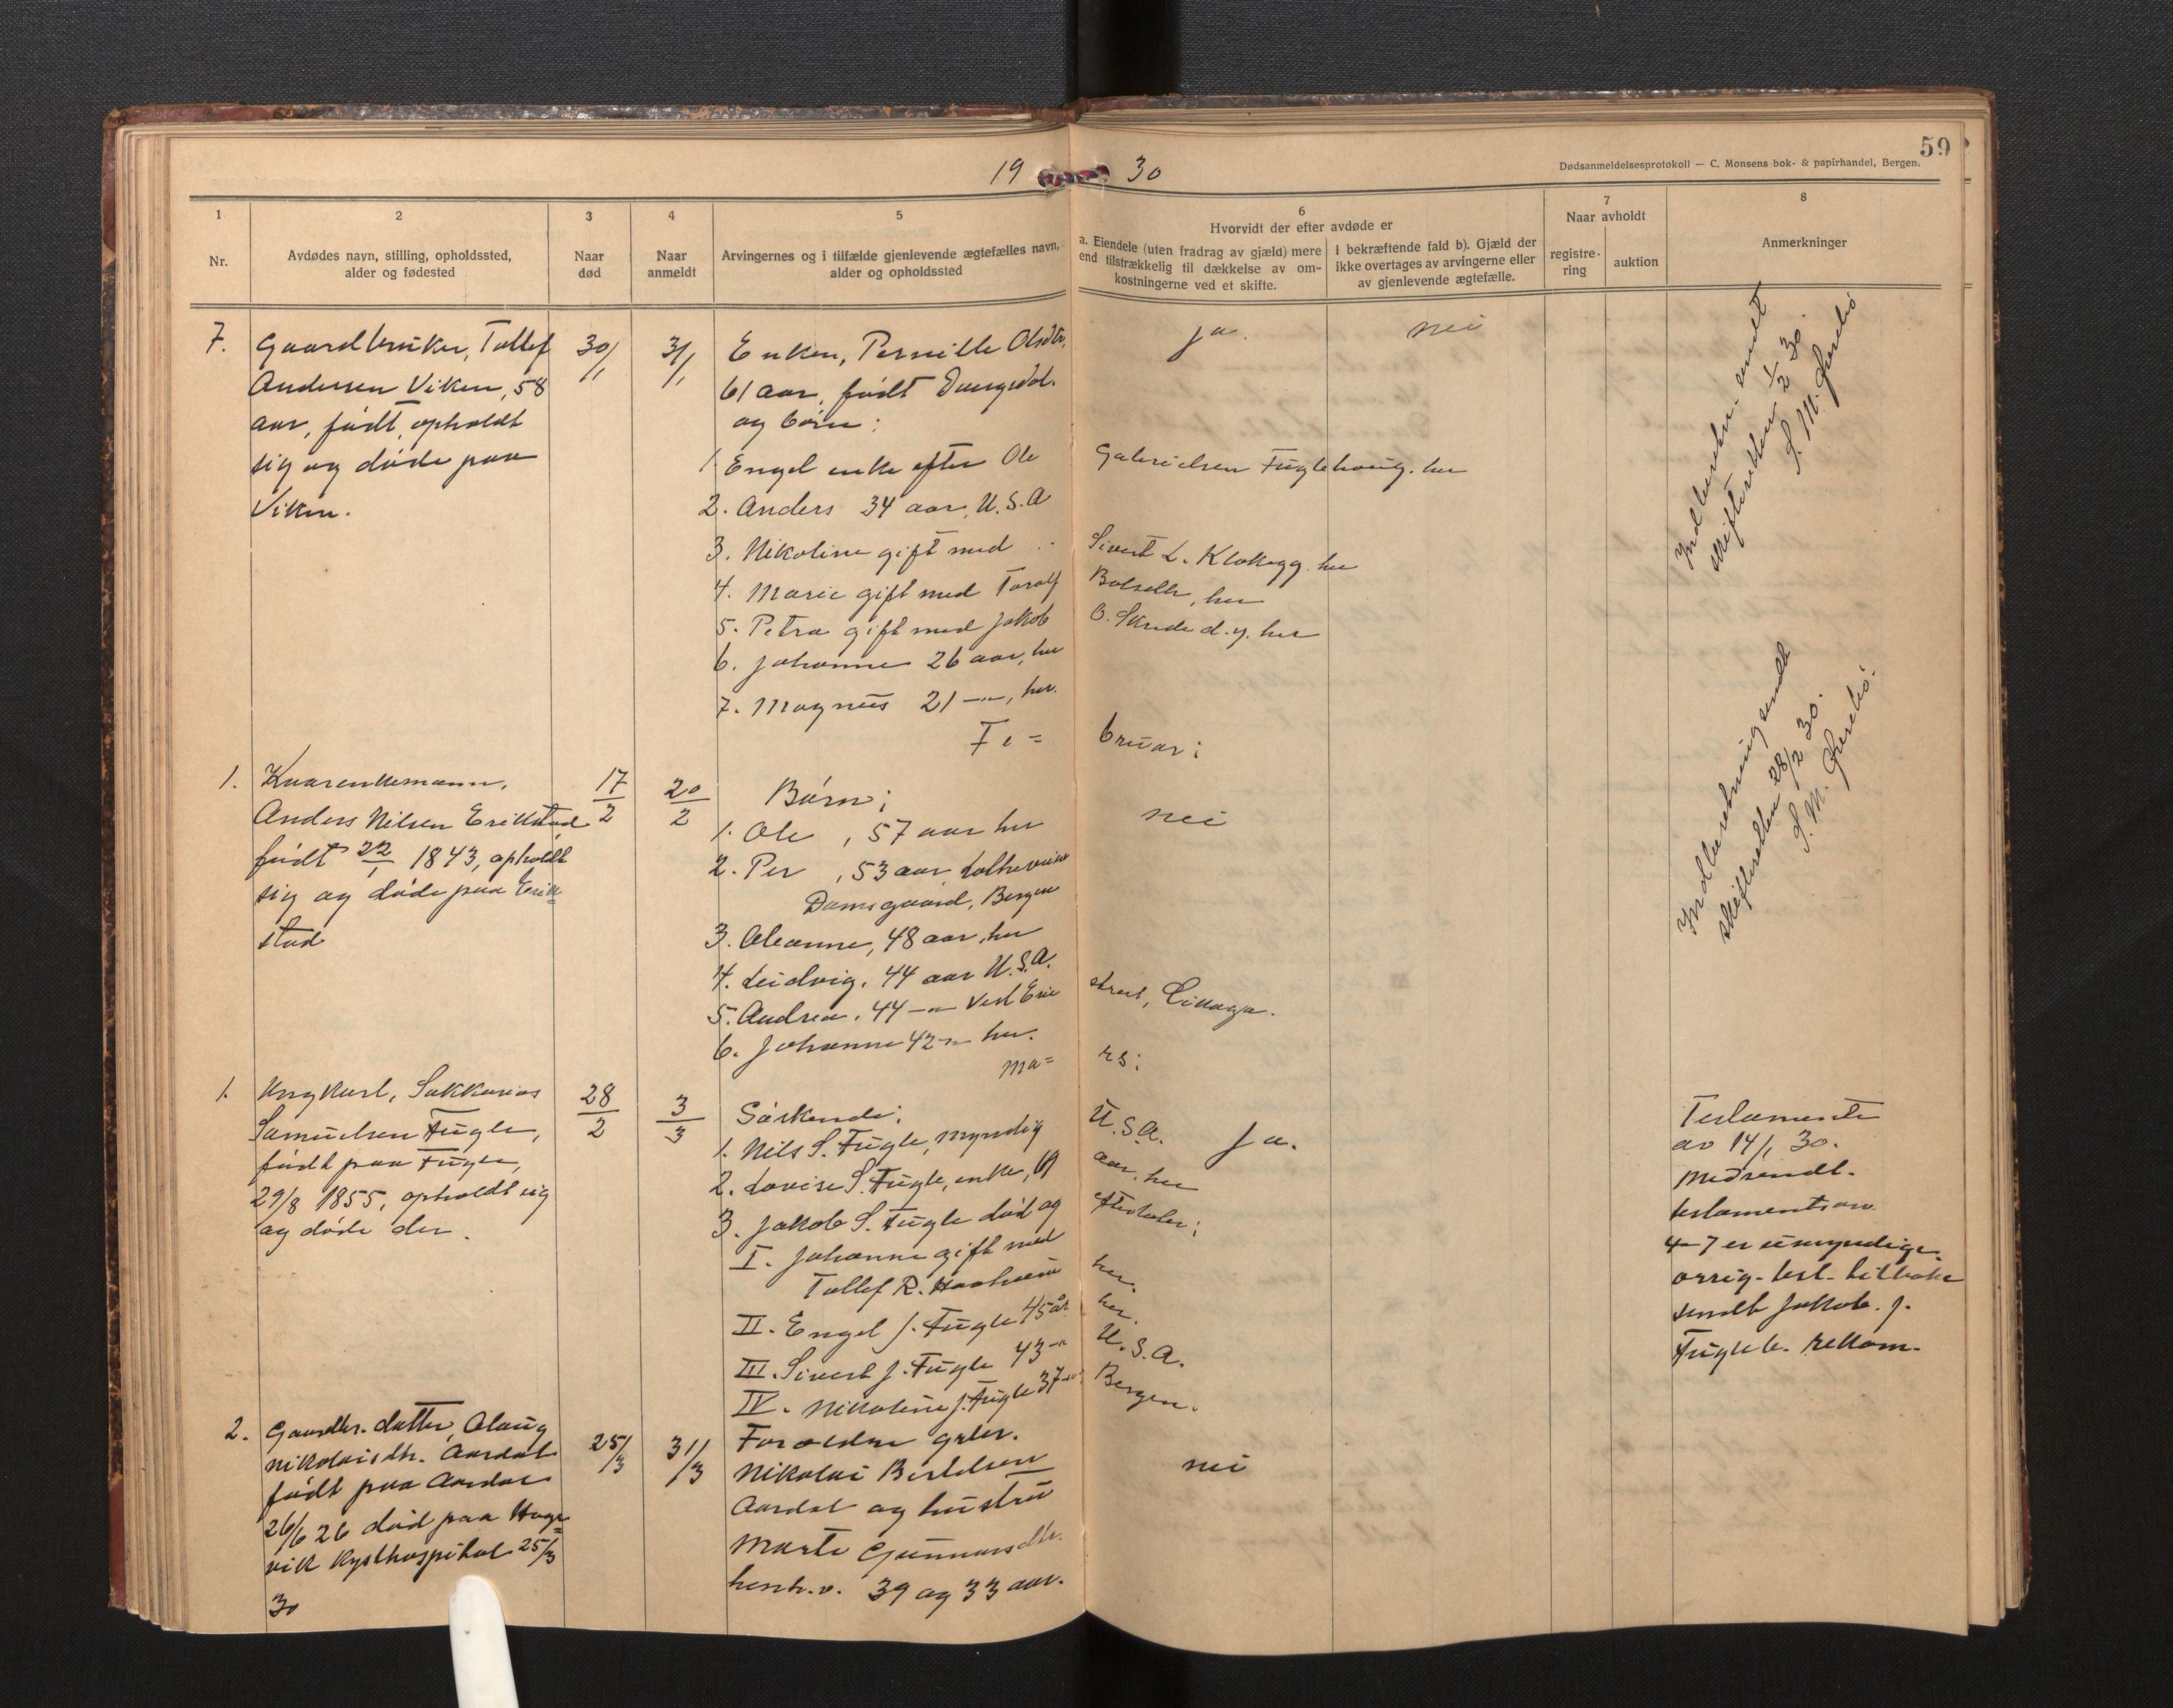 59
Dødsanmeldelsesprotokoll — C. Monsens bok- & papirhandel, Bergen.
19 30
1
Nr.
2
Avdødes navn, stilling, opholdssted,
alder og fødested
3
Naar
død
4
Naar
anmeldt
5
Arvingernes og i tilfælde gjenlevende ægtefælles navn,
alder og opholdssted
6
Hvorvidt der efter avdøde er
a. Eiendele (uten fradrag av gjæld) mere
end tilstrækkelig til dækkelse av om-
kostningerne ved et skifte.
I bekræftende fald b). Gjæld der
ikke overtages av arvingerne eller
av gjenlevende ægtefælle.
7
Naar avholdt
registre-
ring
auktion
8
Anmerkninger
7.
Gaardbruker, Tollef
Andersen Viken, 58
aar, født, opholdt
sig og døde paa
Viken.
30/1
31/1
Enken, Pernille Olsdtr,
61 aar, født
og børn:
1. Engel enke efter Ole Gabrielsen Fuglehaug. her
2. Anders 34 aar, U.S.A
3. Nikoline gift med Sivert L. Klokegg. her
4. Marie gift med Toralf Bolseth, her
5. Petra gift med Jakob O. Skrede d.y. her
6. Johanne 26 aar, her
7. Magnus 21 –"–, her.
ja.
nei
Indberetn. sendt
skifteretten 1/2 30.
S. M.
Fe= bruar:
1.
Kaarenkemann,
Anders Nilsen Erikstad
født 22/1 1843, opholdt
sig og døde paa Erik=
stad
17/2
20/2
Børn:
1. Ole , 57 aar her
2. Per , 53 aar,
Damsgaard, Bergen
3. Oleanne, 48 aar, her
4. Ludvig, 44 aar U.S.A.
5. Andrea, 44 –"– Vest Erie street, Cikago.
6. Johanne 42 –"– her.
nei
Indberetning sendt
skifteretten 28/2 30.
S. M.
Ma= rs:
1.
Ungkarl, Sakkarias
Samuelsen Fugle,
født paa Fugle,
29/8 1855, opholdt sig
og døde der.
28/2
3/3
Søskende:
1. Nils S. Fugle, myndig U.S.A.
2. Lovise S. Fugle, enke, 69 aar, her
3. Jakob S. Fugle død og efterlater:
I. Johanne gift med
Tollef R. her.
II. Engel J. Fugle 45 år her.
III. Sivert J. Fugle 43 –"– U.S.A.
IV. Nikoline J. Fugle 37 –"– Bergen.
Ja.
Testamente
av 14/1 30.
Medsendt.
testamentsarv.
4–7 er umyndige.
orrig. test. tilbake
sendt Jakob. J.
Fugle b. rekom.
2.
Gaardbr. datter, Olaug
Nikolaisdtr. Aardal
født paa Aardal
26/6 26 død paa Hage=
vik Kysthospital 25/3
30
25/3
31/3
Forældre gbr.
Nikolai Bertelsen
Aardal og hustru
Marte Gunnarsdtr.
henh.v. 39 og 33 aar.
nei